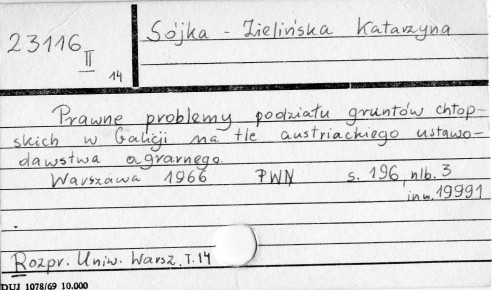 23116 II 14
Sójka - Zielińska Katarzyna
Prawne problemy podziału gruntów chłop-
skich w Galicji na tle austriackiego ustawo-
dawstwa agrarnego.
Warszawa 1966 PWN s. 196, nlb. 3
inw. 19991
Rozpr. Uniw. Warsz. T. 14
DUJ 1078/69 10.000